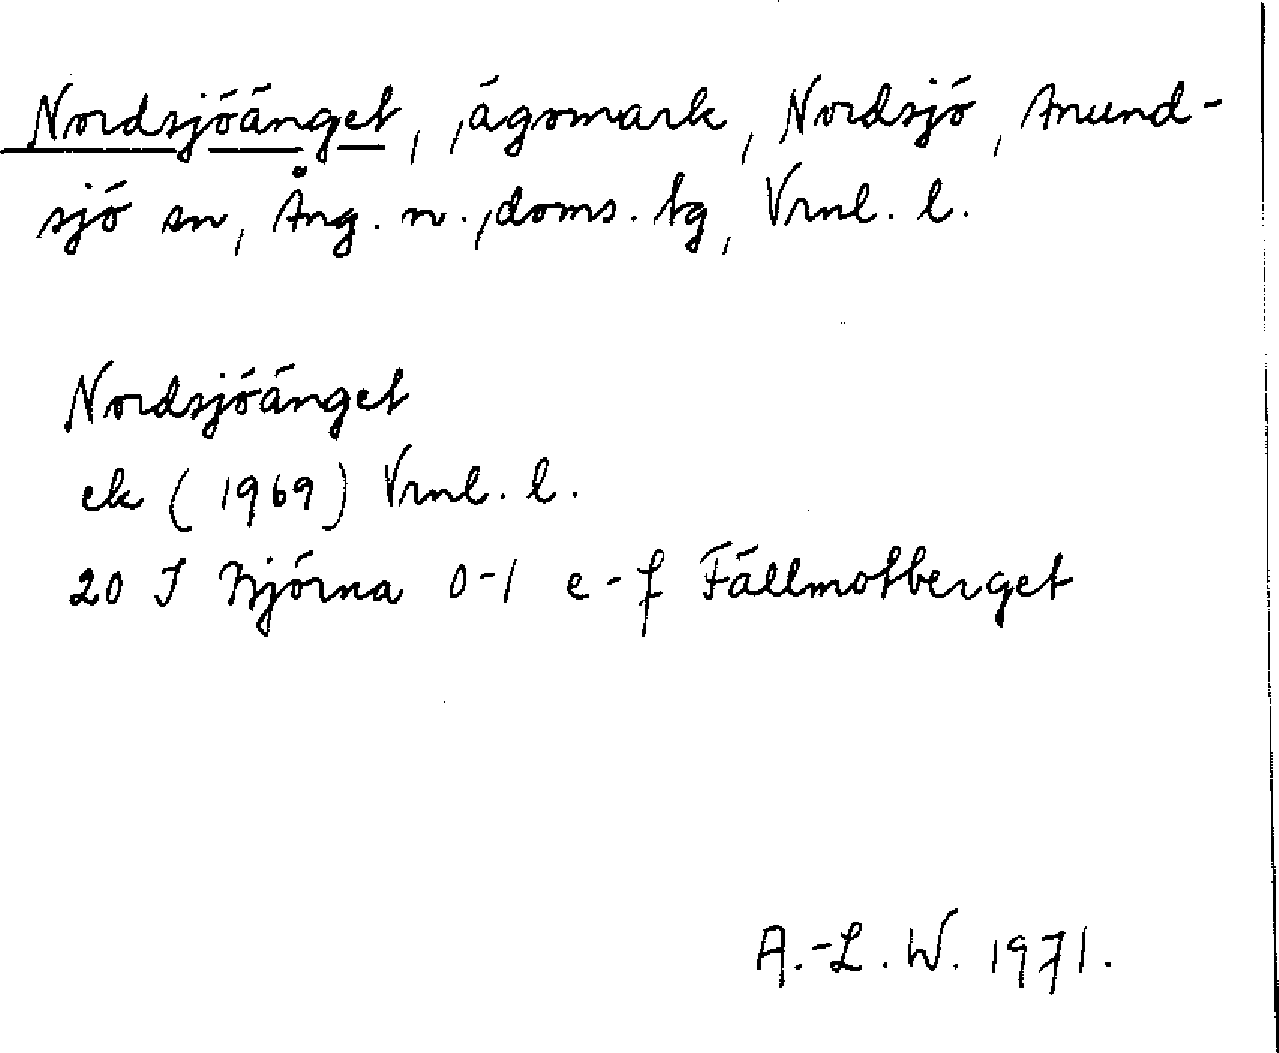 Nordsjöänget, ägomark, Nordsjö, Anund-
sjö sn, Ång. n., doms. tg, Vrml. l.
Nordsjöänget
ek (1969) Vrml. l.
20 J Björna 0-1 e-f Fällmotberget
A.-L. W. 1971.